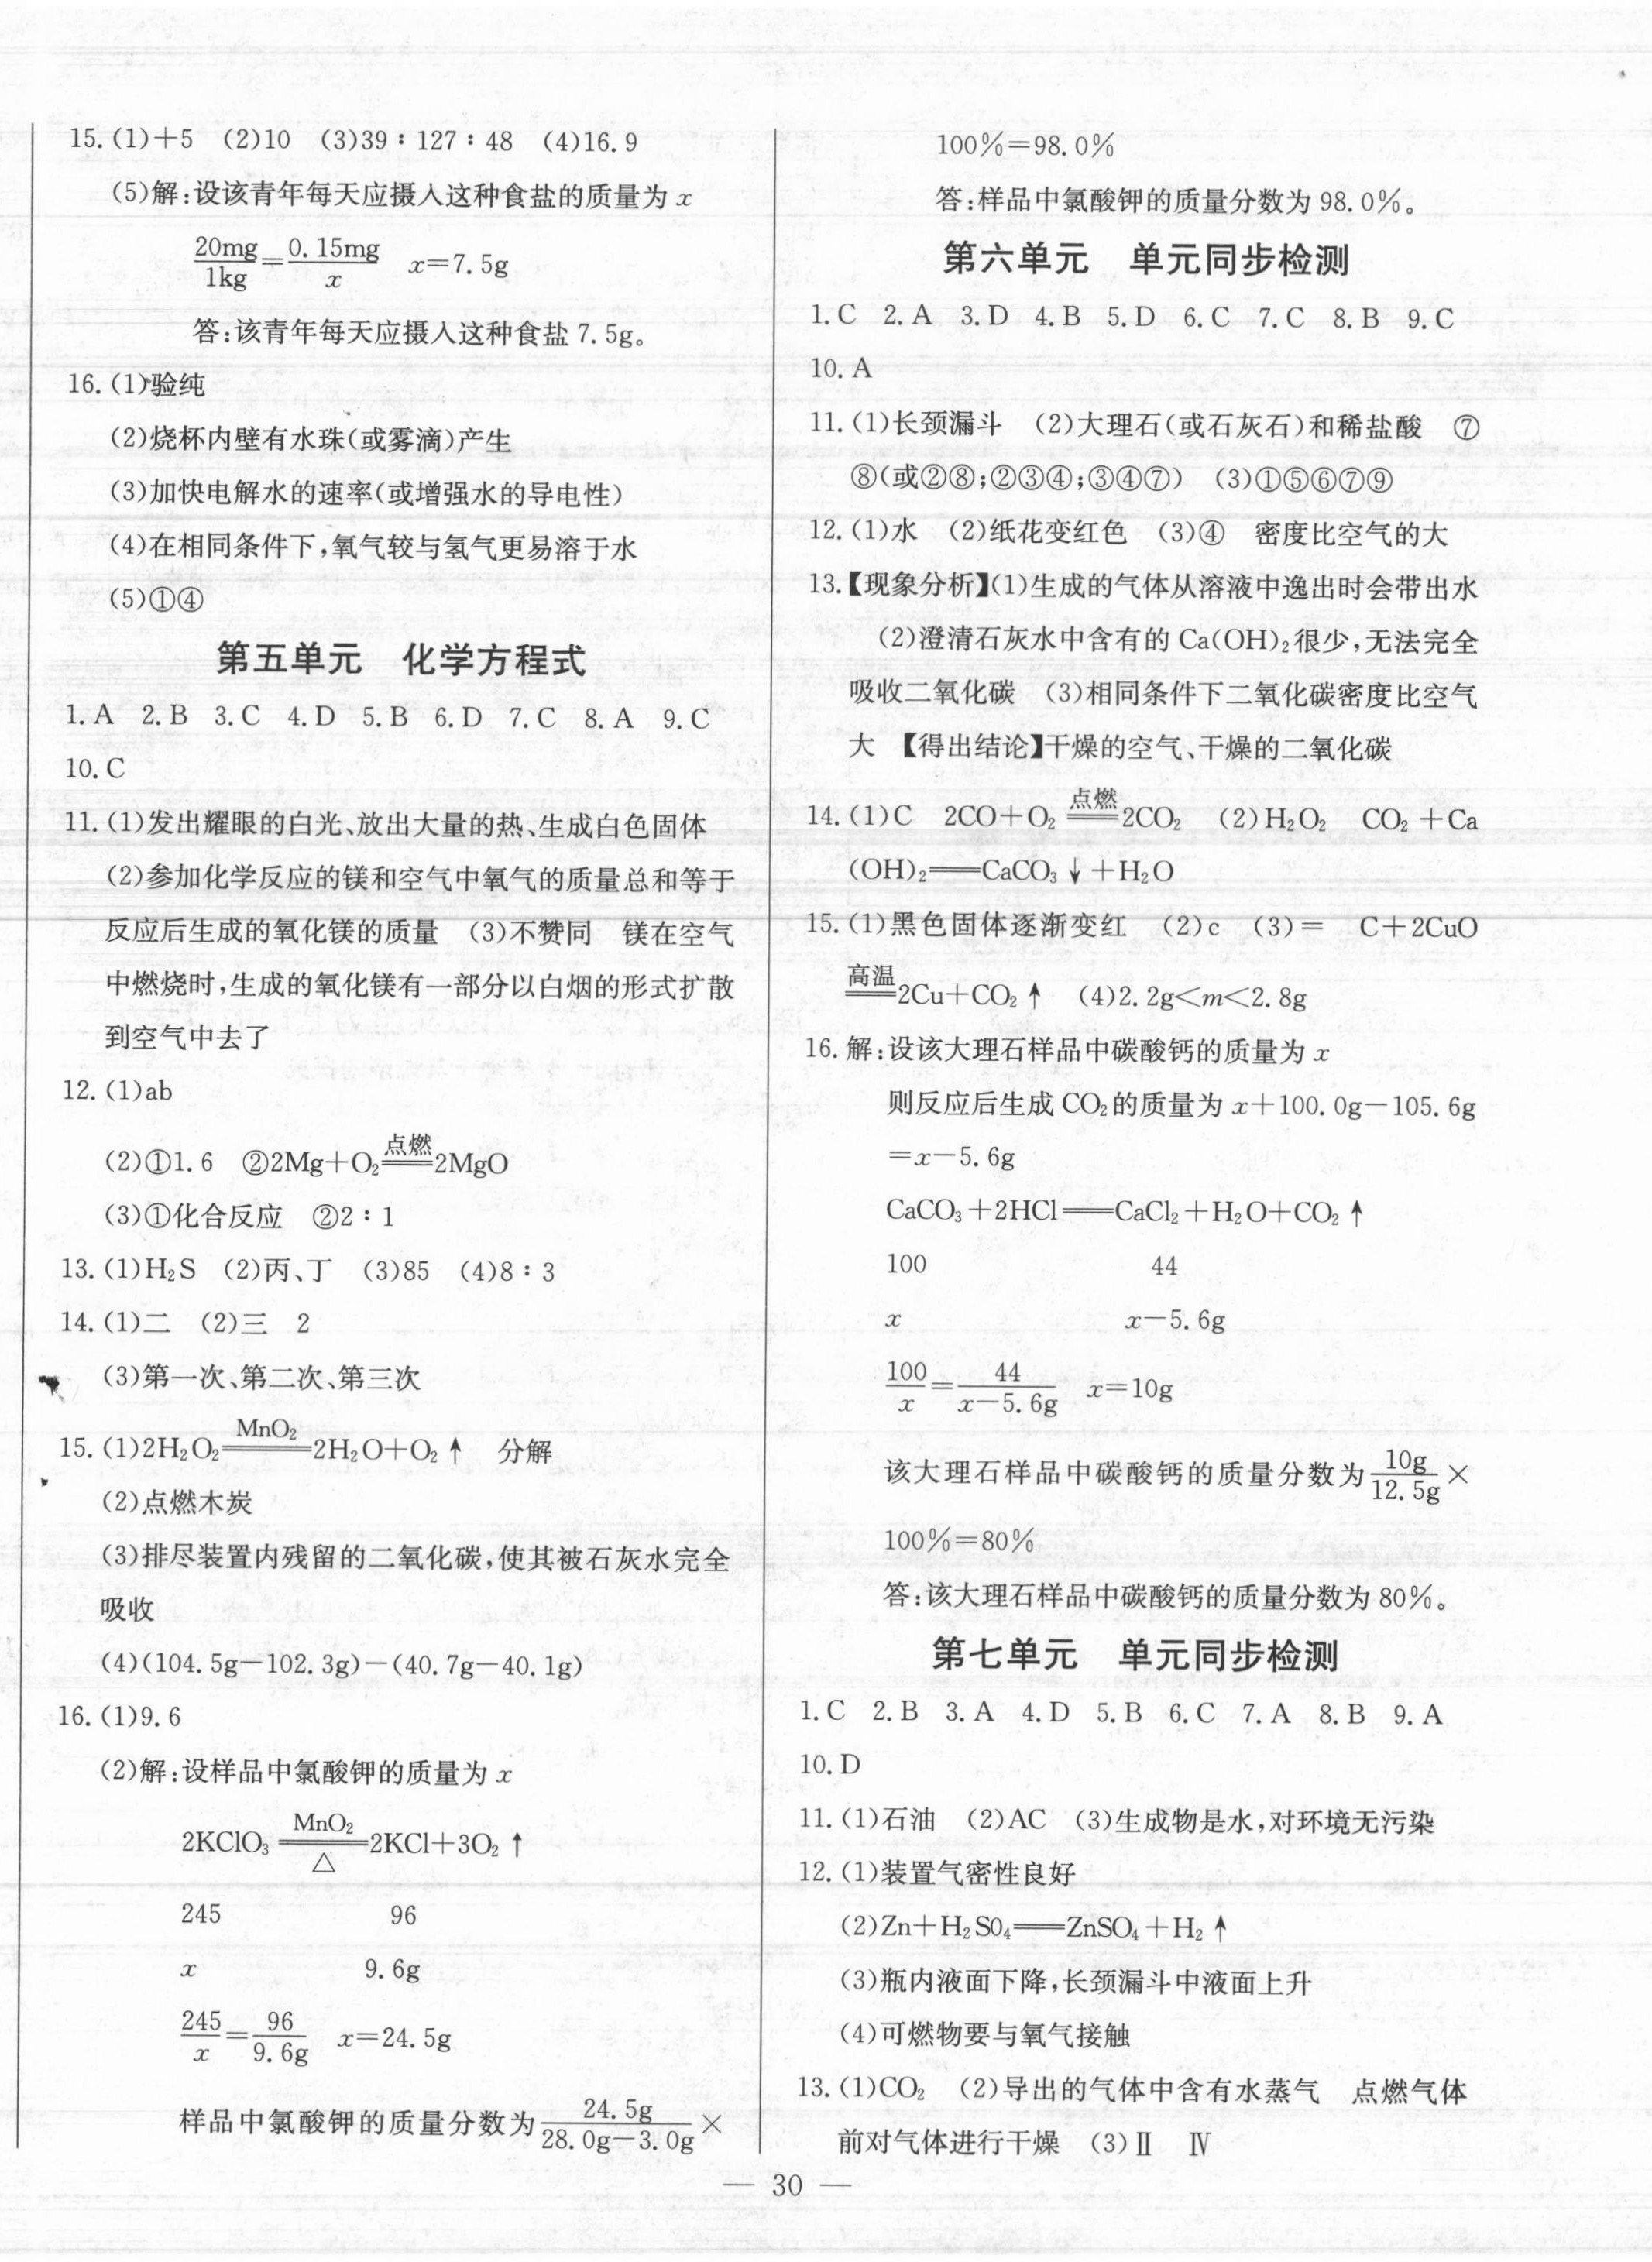 15. (1)+5　(2)10　(3)39∶127∶48　(4)16.9
(5)解:设该青年每天应摄入这种食盐的质量为 x
20mg/1kg=0.15mg/x　x=7.5g
答:该青年每天应摄入这种食盐 7.5g。
16. (1)验纯
(2)烧杯内壁有水珠(或雾滴)产生
(3)加快电解水的速率(或增强水的导电性)
(4)在相同条件下,氧气较与氢气更易溶于水
(5)①④
第五单元　化学方程式
1. A　2. B　3. C　4. D　5. B　6. D　7. C　8. A　9. C
10. C
11. (1)发出耀眼的白光、放出大量的热、生成白色固体
(2)参加化学反应的镁和空气中氧气的质量总和等于
反应后生成的氧化镁的质量　(3)不赞同　镁在空气
中燃烧时,生成的氧化镁有一部分以白烟的形式扩散
到空气中去了
12. (1)ab
(2)①1.6　②2Mg+O₂ 点燃══ 2MgO
(3)①化合反应　②2∶1
13. (1)H₂S　(2)丙、丁　(3)85　(4)8∶3
14. (1)二　(2)三　2
(3)第一次、第二次、第三次
15. (1)2H₂O₂ MnO₂══ 2H₂O+O₂↑　分解
(2)点燃木炭
(3)排尽装置内残留的二氧化碳,使其被石灰水完全
吸收
(4)(104.5g−102.3g)−(40.7g−40.1g)
16. (1)9.6
(2)解:设样品中氯酸钾的质量为 x
2KClO₃ MnO₂══△ 2KCl+3O₂↑
245　96
x　9.6g
245/x=96/9.6g　x=24.5g
样品中氯酸钾的质量分数为 24.5g/(28.0g−3.0g) ×
100%=98.0%
答:样品中氯酸钾的质量分数为 98.0%。
第六单元　单元同步检测
1. C　2. A　3. D　4. B　5. D　6. C　7. C　8. B　9. C
10. A
11. (1)长颈漏斗　(2)大理石(或石灰石)和稀盐酸　⑦
⑧(或②⑧;②③④;③④⑦)　(3)①⑤⑥⑦⑨
12. (1)水　(2)纸花变红色　(3)④　密度比空气的大
13.【现象分析】(1)生成的气体从溶液中逸出时会带出水
(2)澄清石灰水中含有的 Ca(OH)₂很少,无法完全
吸收二氧化碳　(3)相同条件下二氧化碳密度比空气
大　【得出结论】干燥的空气、干燥的二氧化碳
14. (1)C　2CO+O₂ 点燃══ 2CO₂　(2)H₂O₂　CO₂+Ca
(OH)₂══CaCO₃↓+H₂O
15. (1)黑色固体逐渐变红　(2)c　(3)=　C+2CuO
高温══ 2Cu+CO₂↑　(4)2.2g<m<2.8g
16. 解:设该大理石样品中碳酸钙的质量为 x
则反应后生成 CO₂的质量为 x+100.0g−105.6g
=x−5.6g
CaCO₃+2HCl══CaCl₂+H₂O+CO₂↑
100　44
x　x−5.6g
100/x=44/(x−5.6g)　x=10g
该大理石样品中碳酸钙的质量分数为 10g/12.5g ×
100%=80%
答:该大理石样品中碳酸钙的质量分数为 80%。
第七单元　单元同步检测
1. C　2. B　3. A　4. D　5. B　6. C　7. A　8. B　9. A
10. D
11. (1)石油　(2)AC　(3)生成物是水,对环境无污染
12. (1)装置气密性良好
(2)Zn+H₂S0₄══ZnSO₄+H₂↑
(3)瓶内液面下降,长颈漏斗中液面上升
(4)可燃物要与氧气接触
13. (1)CO₂　(2)导出的气体中含有水蒸气　点燃气体
前对气体进行干燥　(3)Ⅱ　Ⅳ
— 30 —